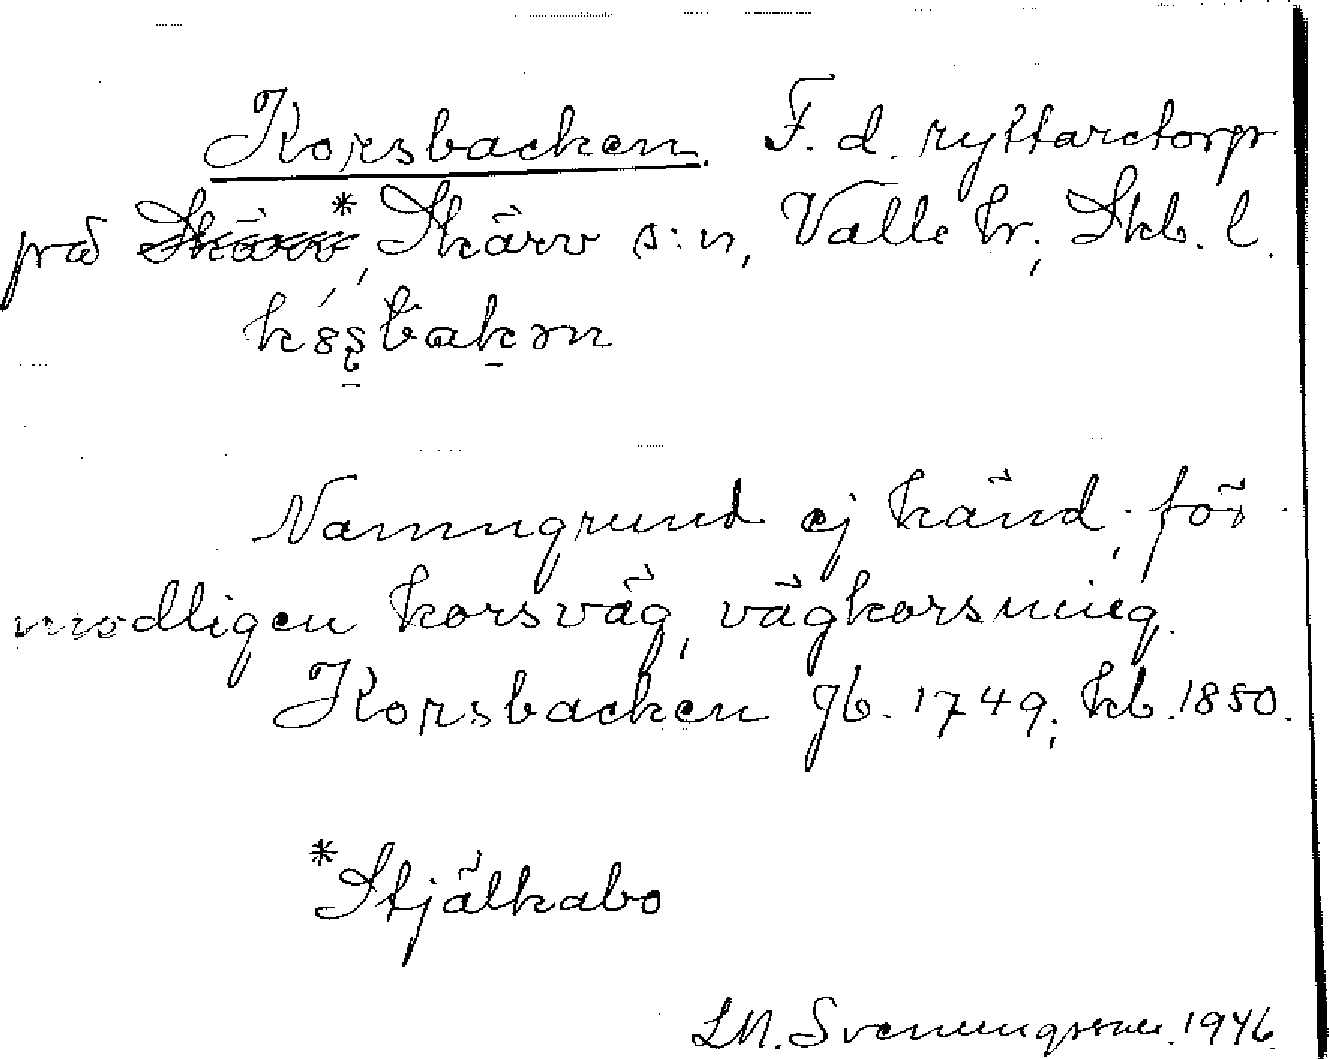 Korsbacken. F. d. ryttaretorp
på Skärv*, Skärv s:n, Valle hr, Skb. l.
Namngrund ej känd, för-
modligen korsväg, vägkorsning.
Korsbacken Jb. 1749, kb. 1850.
*Stjälkabo
LM. Svenungsson. 1946